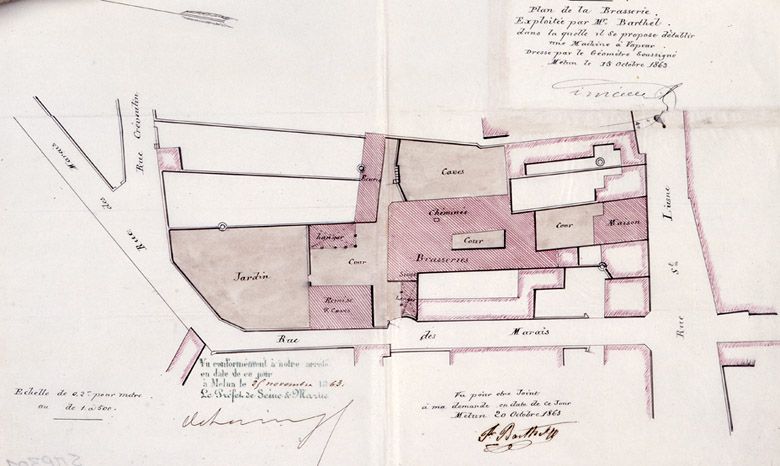 Plan de la Brasserie.
Exploitée par Mr. Barthel
dans la quelle il se propose d'établir
une Machine à Vapeur
Dressé par le Géomètre Soussigné
Melun le 18 Octobre 1863
Rue
des
Marais
Rue
Caves
Cheminée
Cour
Cour
Maison
Hangar
Jardin
Cour
Brasseries
Remise
& Caves
Rue
St
Liane
Rue
des
Marais
Vu conformément à notre arrêté
en date de ce jour
à Melun le 25 novembre 1863.
Le Préfet de Seine & Marne
Echelle de 0,2c pour mètre
ou de 1 à 500.
Vu pour être Joint
à ma demande en date de ce Jour
Melun 20 Octobre 1863
Barthel